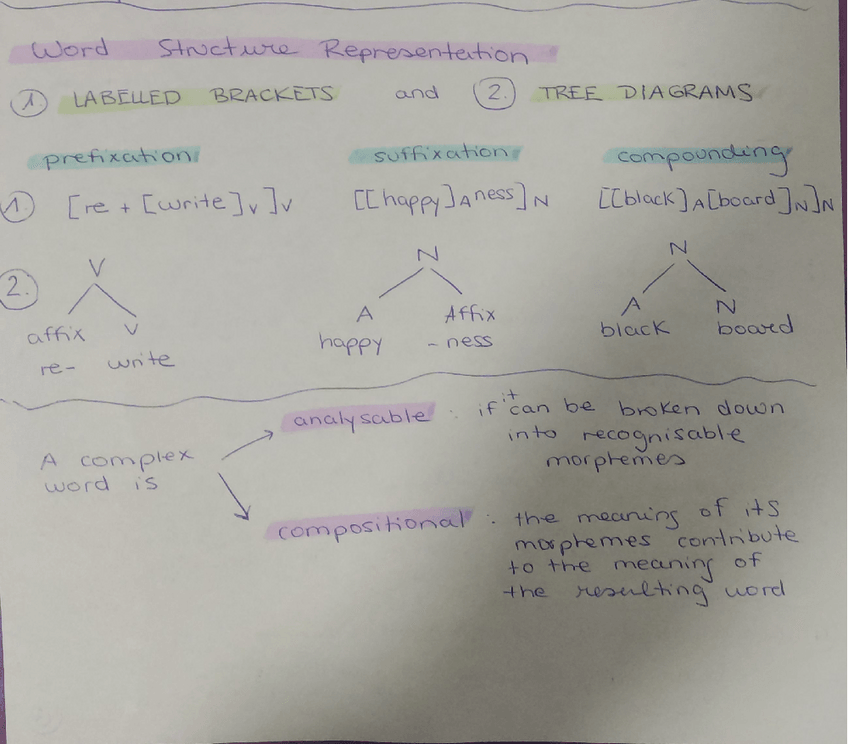 Word Structure Representation
1. LABELLED BRACKETS and 2. TREE DIAGRAMS
prefixation suffixation compounding
1. [re + [write]V]V [[happy]A ness]N [[black]A[board]N]N
2. V N N
affix V A Affix A N
re- write happy - ness black board
analysable : if it can be broken down
into recognisable
morphemes
A complex
word is
compositional : the meaning of its
morphemes contribute
to the meaning of
the resulting word